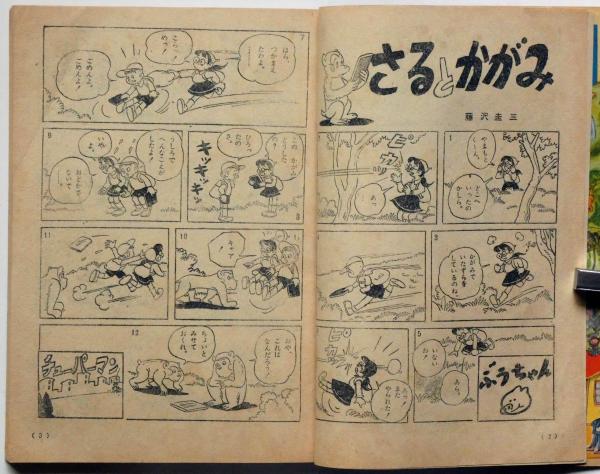 さるとかがみ
藤沢圭三
1
やまもと
くーん。
どこへ
いったの
かしら。
ピカッ
あっ
3
かがみで
いたずらを
しているのね。
5
あら、
いない
わ！
ピカ
また
やられた！
ぷうちゃん
(2)
7
こらっ
めっ！
ほら、
つかまえ
たわよ。
ごめんよ、
ごめんよ！
8
この かがみ
どうした
の？
ひろった
のさ。
キッキッキッ
9
うしろで
へんなこえが
したよ！
いや
よ、
おどかさ
ないで。
10
キャア！
11
12
おや、
これは
なんだろう？
ちょいと
みせて
おくれ。
チューバーマン
(3)